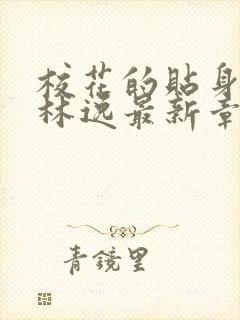 校花的貼身
林逸最新章
青鏡里